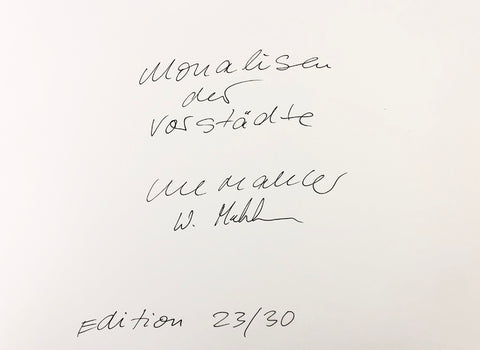 Monalisen
der
Vorstädte
Ute Mahler
W. Mahler
Edition 23/30